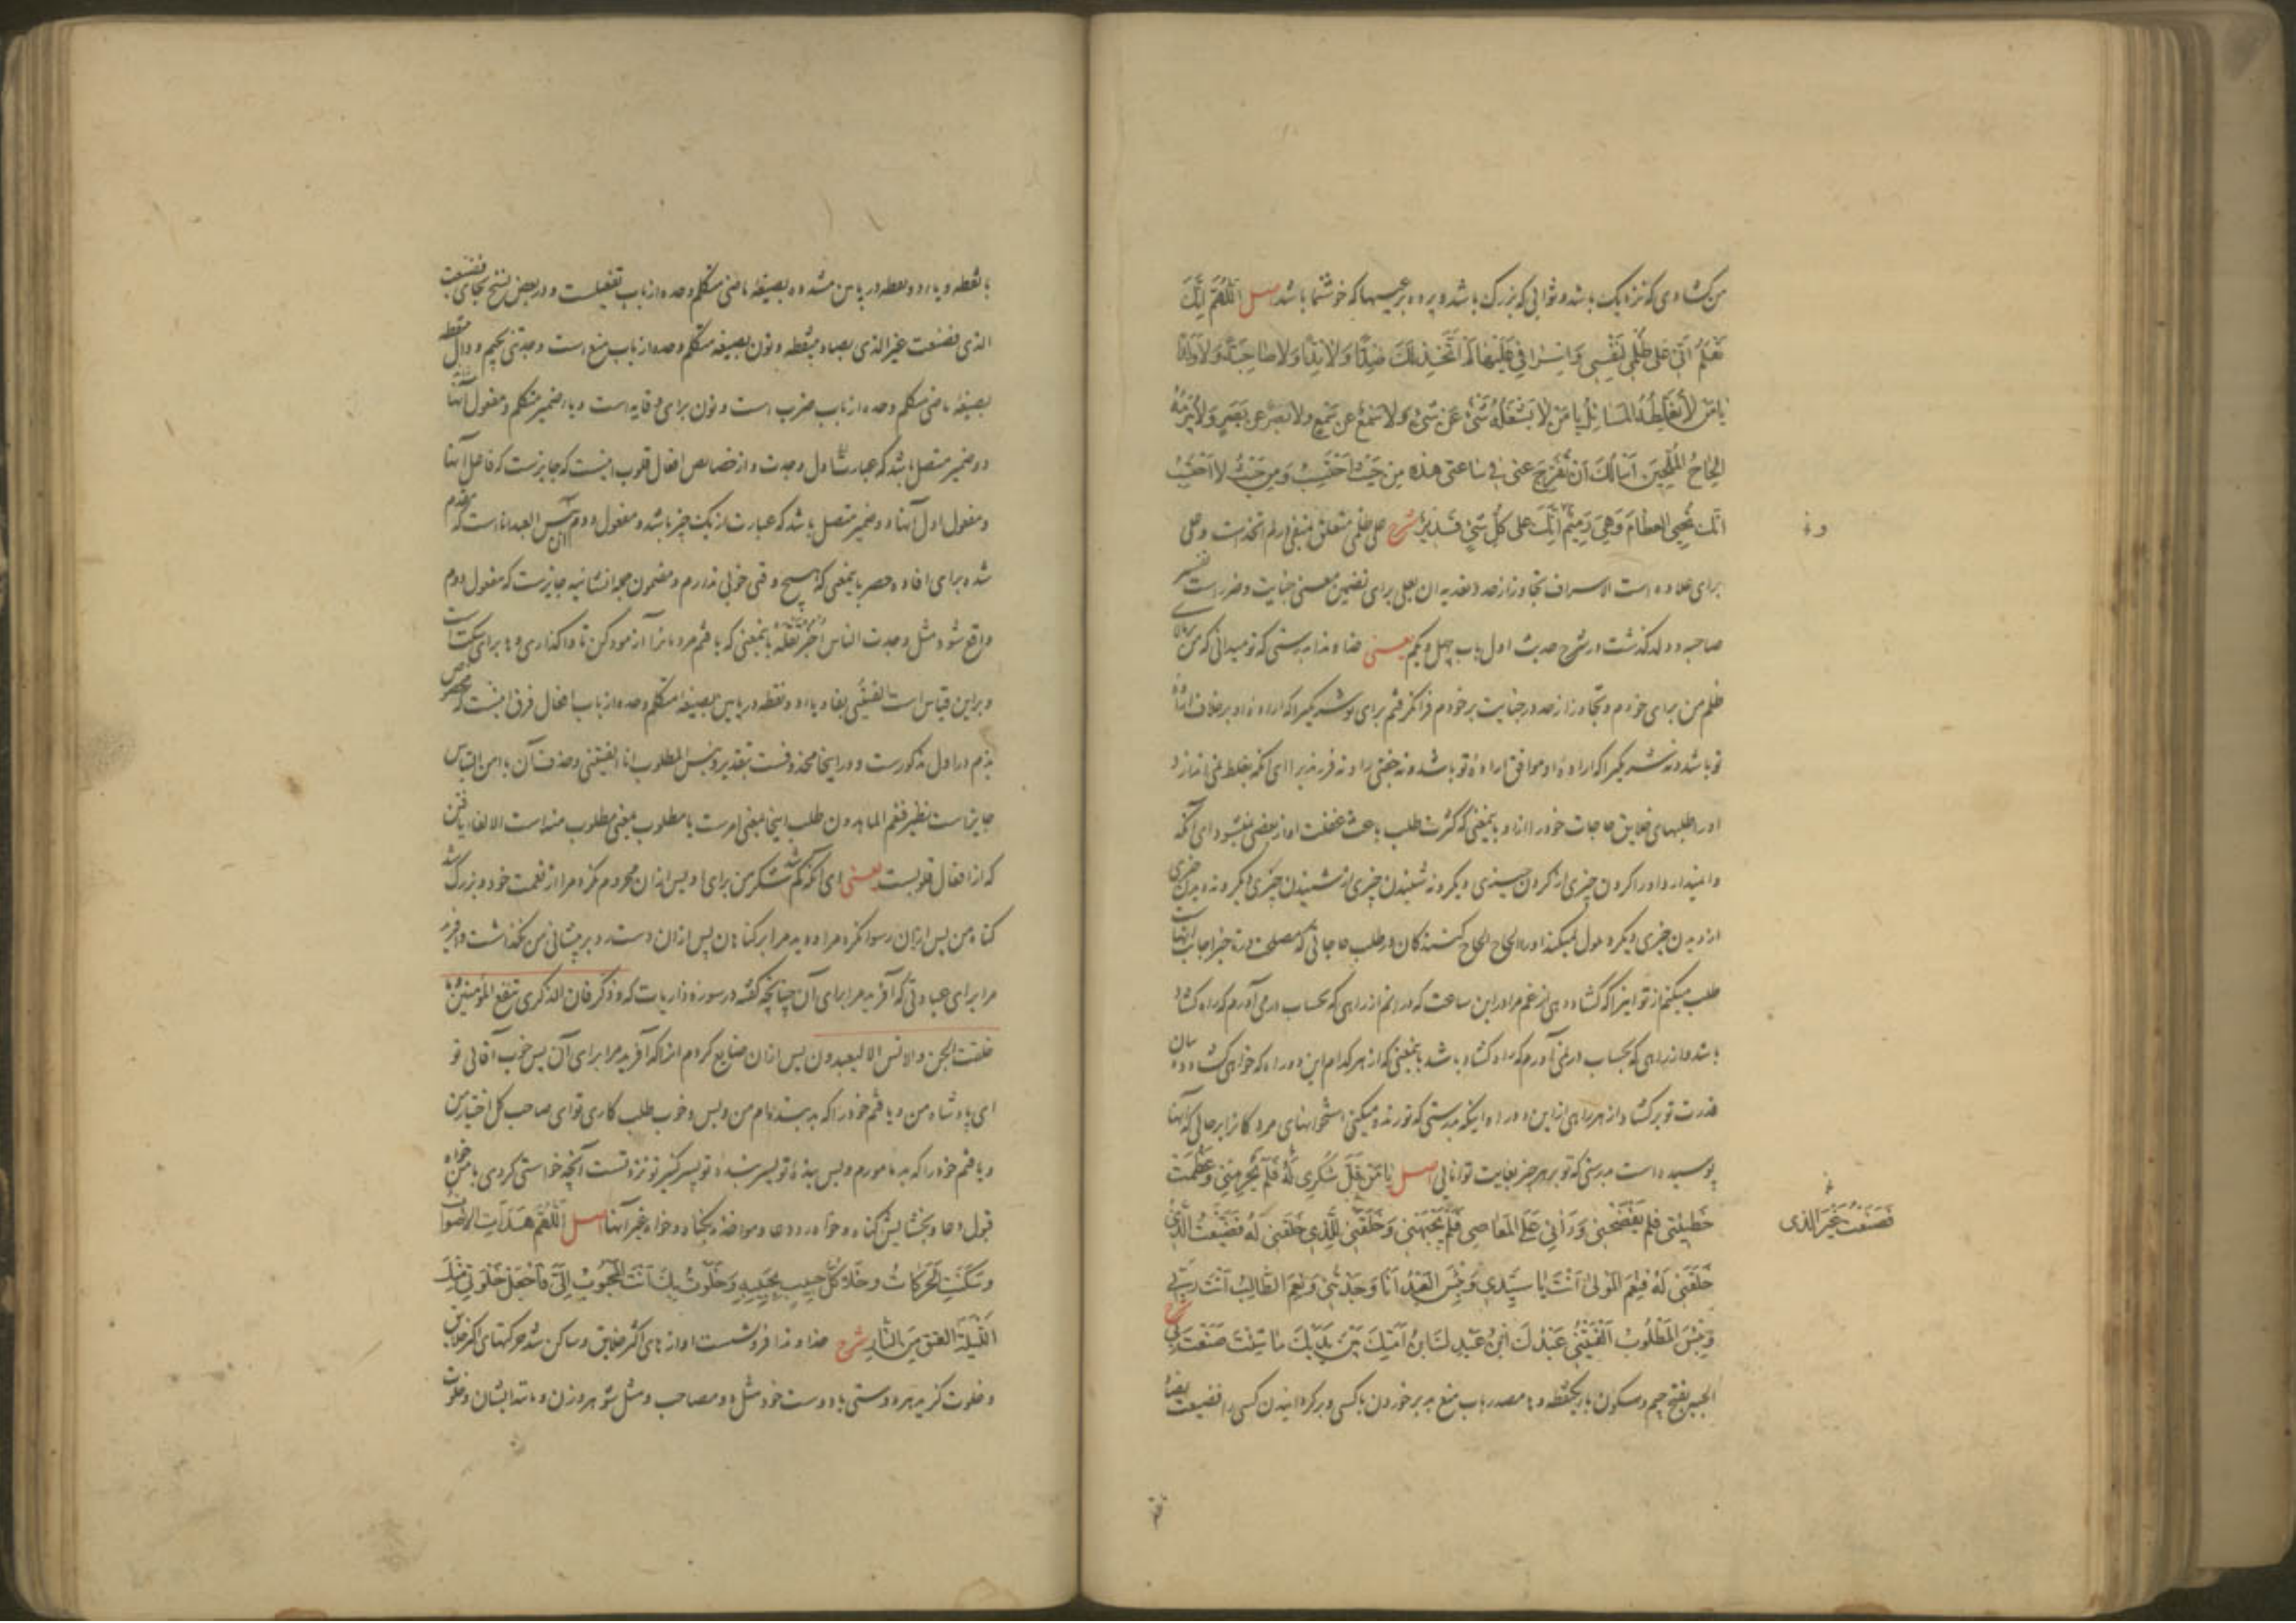 من کشادی که نزدیک باشد و ثوابی که بزرگ باشد و پرده بر عیبها که خوشنما باشد اصل اللَّهُمَّ اِنَّكَ
تَعْلَمُ اَنّى عَلى ظُلْمى لِنَفْسى وَاِسْرافى عَلَيْها لَمْ اَتَّخِذْ لَكَ ضِدًّا وَلا نِدًّا وَلا صاحِبَةً وَلا وَلَدًا
يا مَنْ لا تُغَلِّطُهُ الْمَسائِلُ يا مَنْ لا يَشْغَلُهُ شَىْءٌ عَنْ شَىْءٍ وَلا سَمْعٌ عَنْ سَمْعٍ وَلا بَصَرٌ عَنْ بَصَرٍ وَلا يُبْرِمُهُ
اِلْحاحُ الْمُلِحّينَ اَسْاَلُكَ اَنْ تُفَرِّجَ عَنّى فى ساعَتى هذِهِ مِنْ حَيْثُ اَحْتَسِبُ وَمِنْ حَيْثُ لا اَحْتَسِبُ
اِنَّكَ تُحْيِى الْعِظامَ وَهِىَ رَميمٌ اِنَّكَ عَلى كُلِّ شَىْءٍ قَديرٌ شرح علی ظلمی متعلق بنفی در لم اتخذ است و علی
برای علاوه است الاسراف تجاوز از حد و تعدیه آن بعلی برای تضمین معنی جنایت و ضرر است تفسیر
صاحبه و ولد گذشت در شرح حدیث اول باب چهل و یکم یعنی خداوندا بدرستی که تو میدانی که من بر بالای
ظلم من برای خودم و تجاوز از حد در جنایت بر خودم فرا نگرفتم برای تو شریکی را که اراده او بر خلاف ارادهٔ
تو باشد و نه شریکی را که ارادهٔ او موافق ارادهٔ تو باشد و نه جفتی را و نه فرزندیرا ای آنکه بغلط نمی اندازد
اورا طلبهای خلایق حاجات خود را از او بمعنی که کثرت طلب باعث غفلت او از بعضی نمیشود ای آنکه
وا نمیدارد اورا کردن چیزی از کردن چیزی دیگر و نه شنیدن چیزی از شنیدن چیزی دیگر و نه دیدن چیزی
از دیدن چیزی دیگر و ملول نمیکند اورا الحاح الحاح کنندگان در طلب حاجاتی که مصلحت در تأخیر اجابت آنهاست
طلب میکنم از تو اینرا که گشاد دهی از غم مرا در این ساعت که در آنم از راهی که بحساب در می آورم که راه گشاد
باشد و از راهی که بحساب در نمی آورم که راه گشاد باشد بمعنی که از هر کدام این دو راه که خواهی گشاد ده
قدرت تو بر گشاد از هر راهی از این دو راه اینکه بدرستی که تو زنده میکنی استخوانهای مردگانرا بر حالی که آنها
پوسیده است بدرستی که تو بر هر چیز بغایت توانایی اصل يا مَنْ قَلَّ شُكْرى لَهُ فَلَمْ يَحْرِمْنى وَعَظُمَتْ
خَطيئَتى فَلَمْ يَفْضَحْنى وَرَآنى عَلَى الْمَعاصى فَلَمْ يَجْبَهْنى وَخَلَقَنى لِلَّذى خَلَقَنى لَهُ فَضَيَّعْتُ الَّذى
فَصَنَعْتُ غَيْرَ الَّذى
خَلَقَنى لَهُ فَنِعْمَ الْمَوْلى اَنْتَ يا سَيِّدى وَبِئْسَ الْعَبْدُ اَنَا وَجَدْتَنى وَنِعْمَ الطّالِبُ اَنْتَ رَبّى
وَبِئْسَ الْمَطْلُوبُ اَلْفَيْتَنى عَبْدُكَ ابْنُ عَبْدِكَ ابْنُ اَمَتِكَ بَيْنَ يَدَيْكَ ما شِئْتَ صَنَعْتَ بى شرح
الجبه بفتح جیم و سکون بای یکنقطه و ها مصدر باب منع بد بر خوردن با کسی و برگردانیدن کسی را فضیعت بضاد
بانقطه و یاء دو نقطه در پایین مشدده بصیغهٔ ماضی متکلم وحده از باب تفعیلست و در بعض نسخ بجای فضیعت
الذی فصنعت غیر الذی بصاد بینقطه و نون بصیغه متکلم وحده از باب منع است وجدتنی بجیم و دال بینقطه
بصیغهٔ ماضی متکلم وحده از باب ضرب است و نون برای وقایه است و یاء ضمیر متکلم و مفعول آنها
دو ضمیر متصل باشد که عبارت اول وجدت و از خصایص افعال قلوب اینست که جایزست که فاعل آنها
و مفعول اول آنها دو ضمیر متصل باشد که عبارت از یک چیز باشد و مفعول دوم آن بئس العبد انا است که مقدم
شده برای افاده حصر بمعنی که هیچ وقتی خوبی ندارم و مضمون جمله انشائیه جایزست که مفعول دوم
واقع شود مثل وجدت الناس اُخْبُرْ تَقْلِهْ بمعنی که یافتم مردمانرا آزمودکن تا واگذاری و ها برای سکت است
و براین قیاس است الفیتنی بفاء و یاء دو نقطه در پایین بصیغهٔ متکلم وحده از باب افعال فرق اینست که مخصوص
بذم در اول مذکورست و در اینجا محذوفست بتقدیر و بئس المطلوب انا الفیتنی و حذف آن با امن التباس
جایز است نظیر فنعم الماهدون طلب اینجا بمعنی امرست یا مطلوب بمعنی مطلوب منه است الالفاء یافتن
که از افعال قلوبست یعنی ای آنکه کم شد شکر من برای او پس از آن محروم نکرد مرا از نعمت خود و بزرگ شد
گناه من پس از آن رسوا نکرد مرا و دید مرا بر گناهان پس از آن دست رد بر پیشانی من نگذاشت و آفرید
مرا برای عبادتی که آفرید مرا برای آن چنانچه گفته در سوره ذاریات که وذکر فان الذکری تنفع المؤمنین وما
خلقت الجن والانس الا لیعبدون پس از آن ضایع کردم آنرا که آفرید مرا برای آن پس خوب آقائی تو
ای پادشاه من و یافتم خود را که بد بنده‌ام من و بس و خوب طلب کاری تو ای صاحب کل اختیار من
و یافتم خود را که بد مامورم و بس بندهٔ تو پسر بندهٔ تو پسر کنیز تو نزد تست آنچه خواستی کردی با من خواه
قبول دعا و بخشایش گناه و خواه رد دعا و مواخذه بگناه و خواه غیر آنها اصل اَللّهُمَّ هَدَاَتِ الْاَصْواتُ
وَسَكَنَتِ الْحَرَكاتُ وَخَلا كُلُّ حَبيبٍ بِحَبيبِهِ وَخَلَوْتُ بِكَ اَنْتَ الْمَحْبُوبُ اِلَىَّ فَاجْعَلْ خَلْوَتى مِنْكَ
اللَّيْلَةَ الْعِتْقَ مِنَ النّارِ شرح خداوندا فرو نشست اوازهای اکثر خلایق و ساکن شد حرکتهای اکثر خلایق
و خلوت گزید هر دوستی با دوست خود مثل دو مصاحب و مثل شوهر و زن و مانند ایشان و خلوت